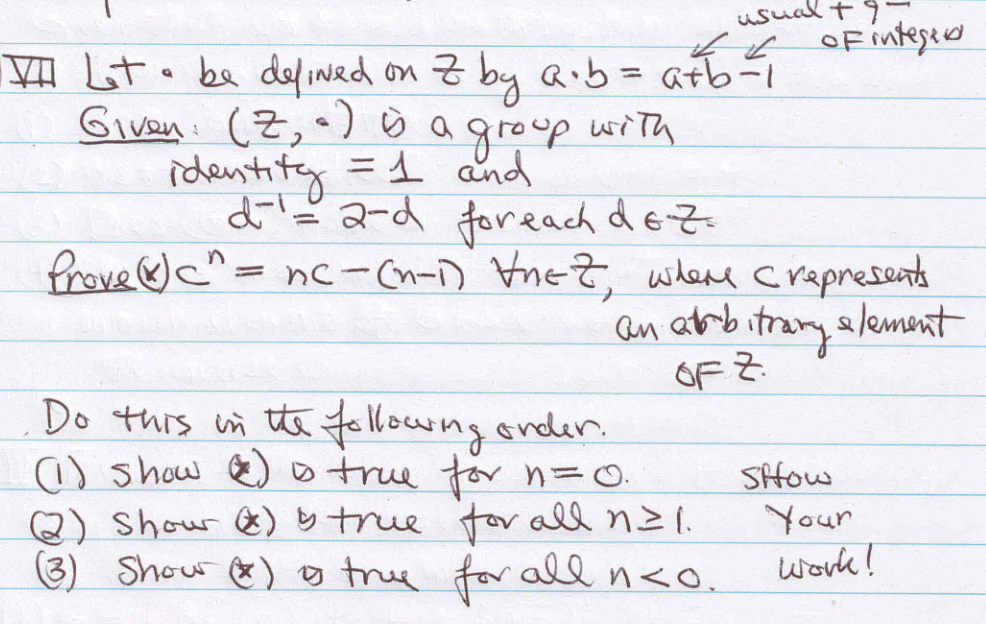 usual + 9 −
of integers
VII Let • be defined on Z by a•b = a+b−1
Given: (Z, •) is a group with
identity = 1 and
d⁻¹ = 2−d for each d ∈ Z.
Prove (*) cⁿ = nc − (n−1) ∀n∈Z, where c represents
an arbitrary element
OF Z.
Do this in the following order.
(1) Show (*) is true for n = 0. SHOW
(2) Show (*) is true for all n ≥ 1. Your
(3) Show (*) is true for all n < 0. work!